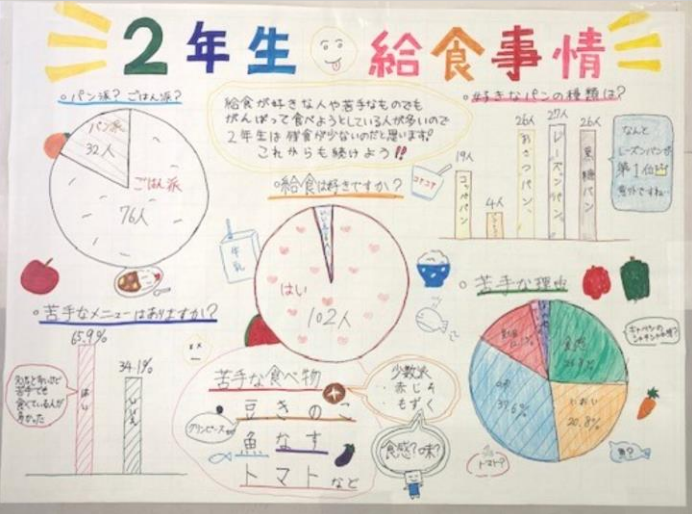 2年生 給食事情
。パン派?ごはん派?
パン派
32人
ごはん派
76人
給食が好きな人や苦手なものでも
がんばって食べようとしている人が多いので
2年生は残食が少ないのだと思います。
これからも続けよう!!
。給食は好きですか?
はい
102人
牛乳
。好きなパンの種類は?
19人
コッペパン
4人
26人
あげパン
27人
レーズンパン
26人
黒糖パン
なんと
レーズンパンが
第1位
意外ですね…
。苦手なメニューはありますか?
65.9%
はい
34.1%
いいえ
苦手でも
食べている人が
多かった
苦手な食べ物
豆 きのこ
グリンピース
魚 なす
トマト など
少数派
・赤じそ
・もずく
食感?味?
。苦手な理由
食感
におい
20.8%
味
37.5%
トマト?
魚?